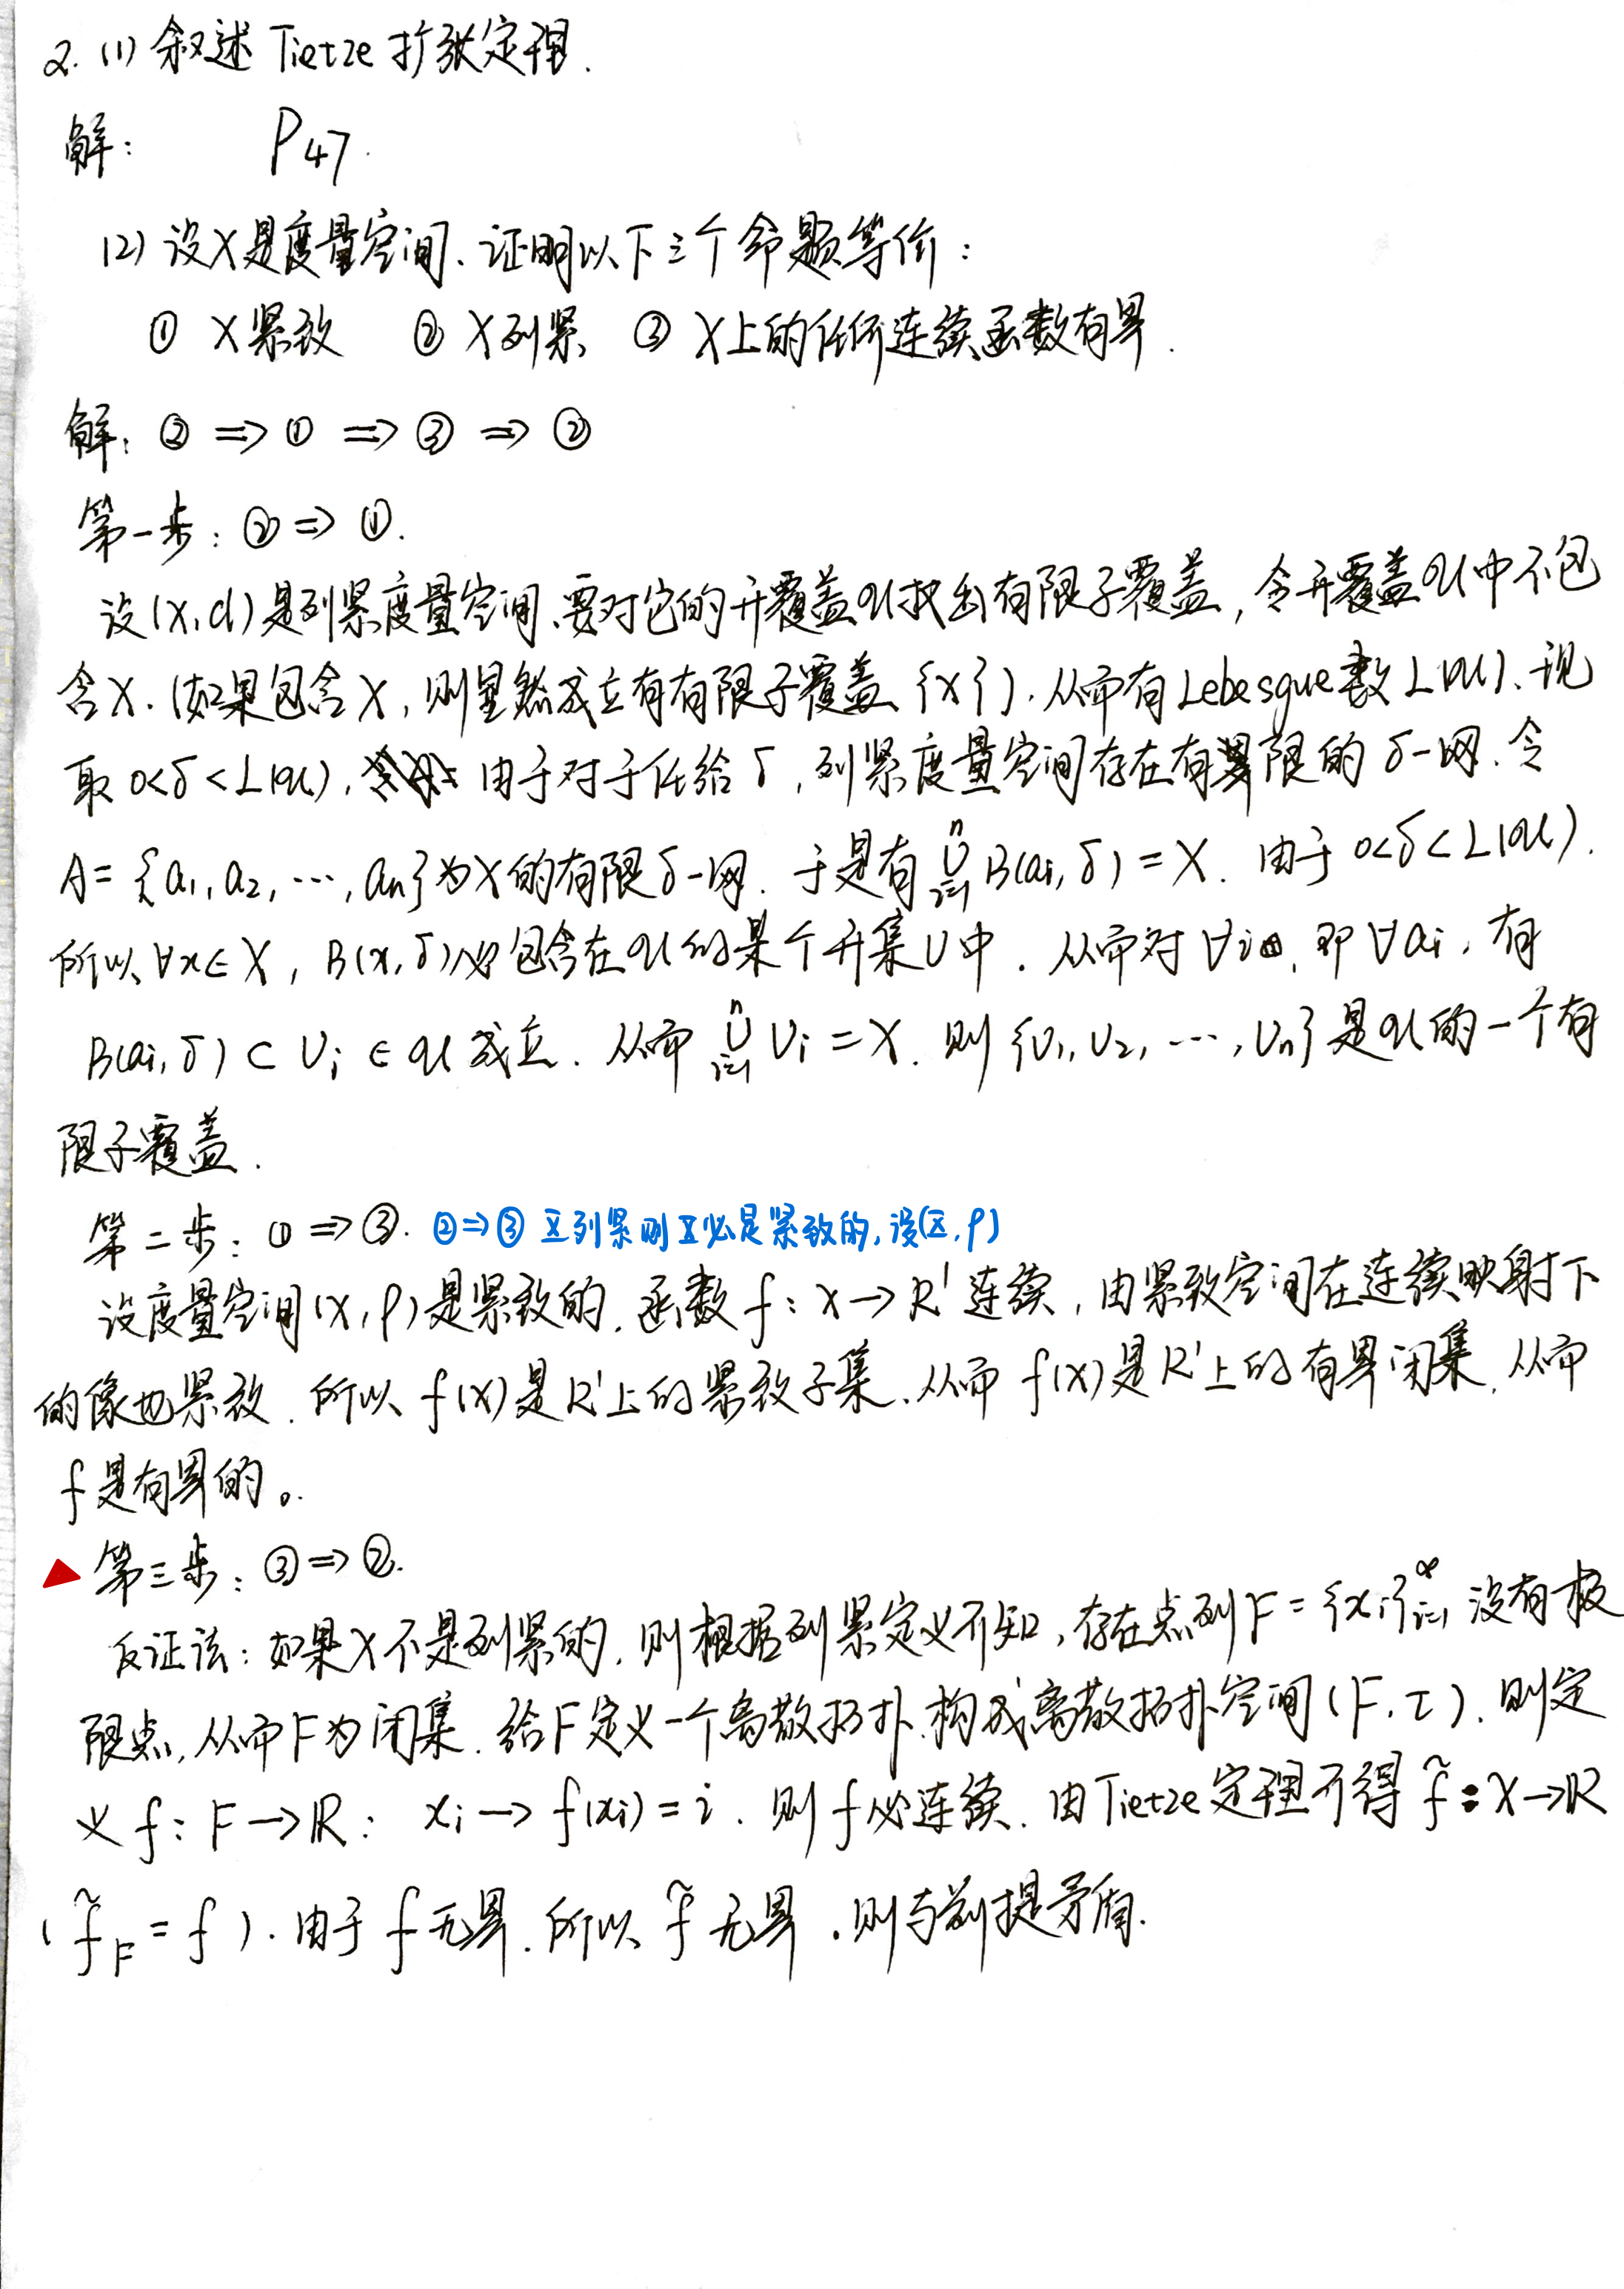 2. (1) 叙述 Tietze 扩张定理.
解: P47.
(2) 设X是度量空间. 证明以下三个命题等价:
① X紧致 ② X列紧 ③ X上的任何连续函数有界.
解: ② => ① => ③ => ②
第一步: ② => ①.
设(X, d)是列紧度量空间. 要对它的开覆盖𝒰找出有限子覆盖, 令开覆盖𝒰中不包
含X. (如果包含X, 则显然成立有有限子覆盖{X}). 从而有Lebesgue数L(𝒰). 现
取 0<δ<L(𝒰), 由于对于任给δ, 列紧度量空间存在有限的δ-网. 令
A = {a₁, a₂, ⋯, aₙ}为X的有限δ-网. 于是有 ⋃ᵢ₌₁ⁿ B(aᵢ, δ) = X. 由于 0<δ<L(𝒰).
所以 ∀x∈X, B(x, δ)必包含在𝒰的某个开集U中. 从而对∀i, 即∀aᵢ, 有
B(aᵢ, δ) ⊂ Uᵢ ∈ 𝒰 成立. 从而 ⋃ᵢ₌₁ⁿ Uᵢ = X. 则 {U₁, U₂, ⋯, Uₙ}是𝒰的一个有
限子覆盖.
第二步: ① => ③. ②=>③ X列紧则X必是紧致的, 设(X, ρ)
设度量空间(X, ρ)是紧致的. 函数 f: X → R¹ 连续, 由紧致空间在连续映射下
的像也紧致. 所以 f(X)是R¹上的紧致子集. 从而 f(X)是R¹上的有界闭集. 从而
f 是有界的。
第三步: ③ => ②.
反证法: 如果X不是列紧的. 则根据列紧定义可知, 存在点列F = {xᵢ}ᵢ₌₁^∞ 没有极
限点, 从而F为闭集. 给F定义一个离散拓扑. 构成离散拓扑空间(F, τ). 则定
义 f: F → ℝ: xᵢ → f(xᵢ) = i. 则 f必连续. 由Tietze定理可得 f̃: X → ℝ
( f̃_F = f ). 由于 f 无界. 所以 f̃ 无界. 则与前提矛盾.